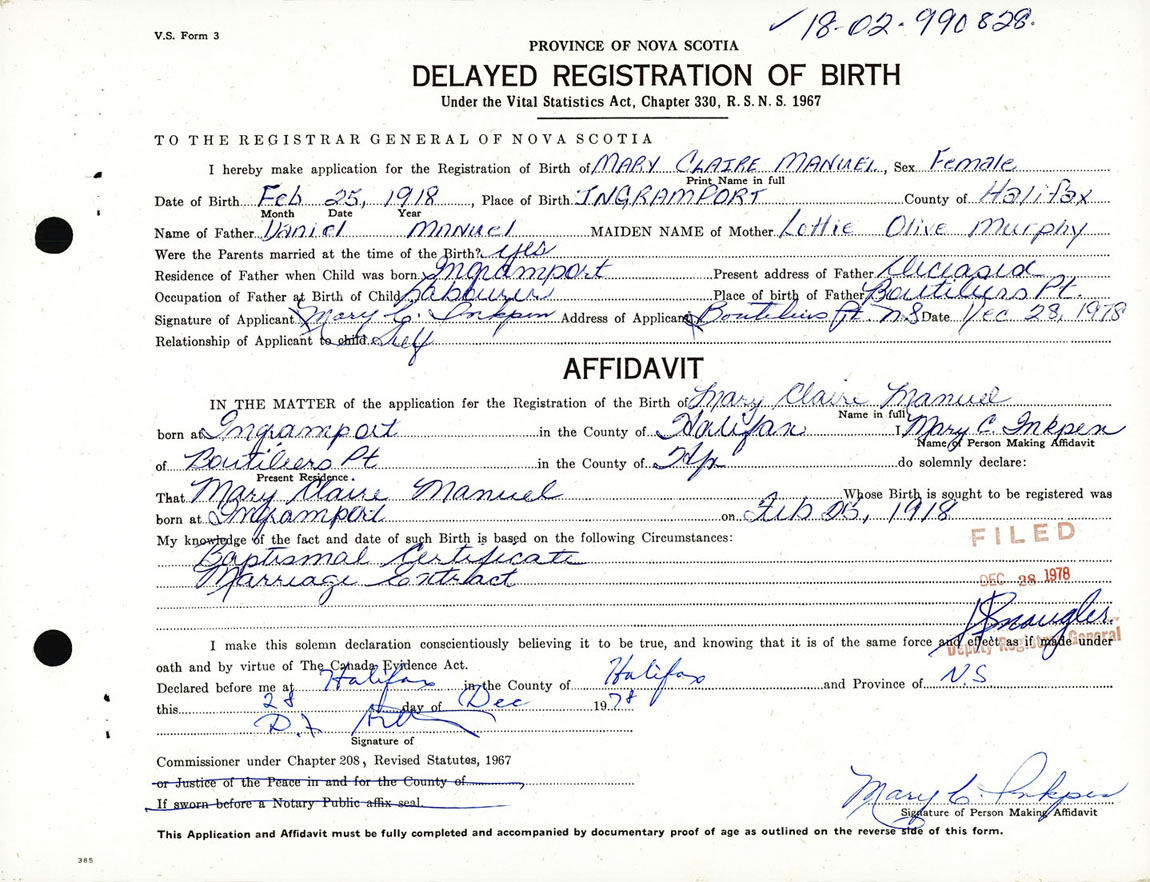 ✓ 18-02-990828.
V.S. Form 3
PROVINCE OF NOVA SCOTIA
DELAYED REGISTRATION OF BIRTH
Under the Vital Statistics Act, Chapter 330, R.S.N.S. 1967
TO THE REGISTRAR GENERAL OF NOVA SCOTIA
I hereby make application for the Registration of Birth of MARY CLAIRE MANUEL, Sex Female
Print Name in full
Date of Birth Feb 25, 1918, Place of Birth INGRAMPORT County of Halifax
Month Date Year
Name of Father Daniel Manuel MAIDEN NAME of Mother Lottie Olive Murphy
Were the Parents married at the time of the Birth? yes
Residence of Father when Child was born Ingramport Present address of Father Deceased
Occupation of Father at Birth of Child Labourer Place of birth of Father Boutiliers Pt.
Signature of Applicant Mary C. Inkpen Address of Applicant Boutiliers Pt N.S Date Dec 28, 1978
Relationship of Applicant to child Self
AFFIDAVIT
IN THE MATTER of the application for the Registration of the Birth of Mary Claire Manuel
Name in full
born at Ingramport in the County of Halifax I Mary C. Inkpen
Name of Person Making Affidavit
of Boutiliers Pt in the County of Hfx do solemnly declare:
Present Residence.
That Mary Claire Manuel Whose Birth is sought to be registered was
born at Ingramport on Feb 25, 1918
My knowledge of the fact and date of such Birth is based on the following Circumstances:
FILED
Baptismal Certificate
Marriage Contract
DEC 28 1978
I make this solemn declaration conscientiously believing it to be true, and knowing that it is of the same force and effect as if made under
Deputy Registrar General
oath and by virtue of The Canada Evidence Act.
Declared before me at Halifax in the County of Halifax and Province of N.S
this 28 day of Dec 1978
D.F.
Signature of
Commissioner under Chapter 208, Revised Statutes, 1967
or Justice of the Peace in and for the County of
If sworn before a Notary Public affix seal.
Mary C. Inkpen
Signature of Person Making Affidavit
This Application and Affidavit must be fully completed and accompanied by documentary proof of age as outlined on the reverse side of this form.
385